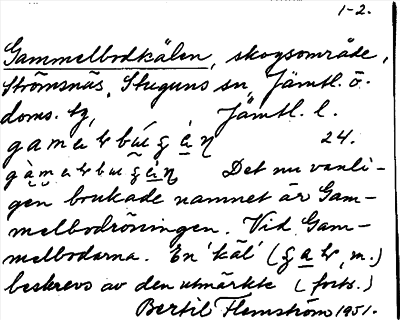 1-2.
Gammelbodkälen, skogsområde,
Strömsnäs, Stuguns sn, Jämtl. ö.
doms. tg, Jämtl. l.
24.
Det nu vanli-
gen brukade namnet är Gam-
melbodröningen. Vid Gam-
melbodarna. En 'käl' ( m.)
beskrevs av den utmärkte (forts.)
Bertil Flemström 1951.